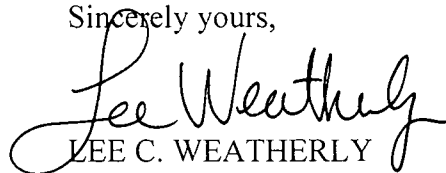 Sincerely yours,
Lee Weatherly
LEE C. WEATHERLY